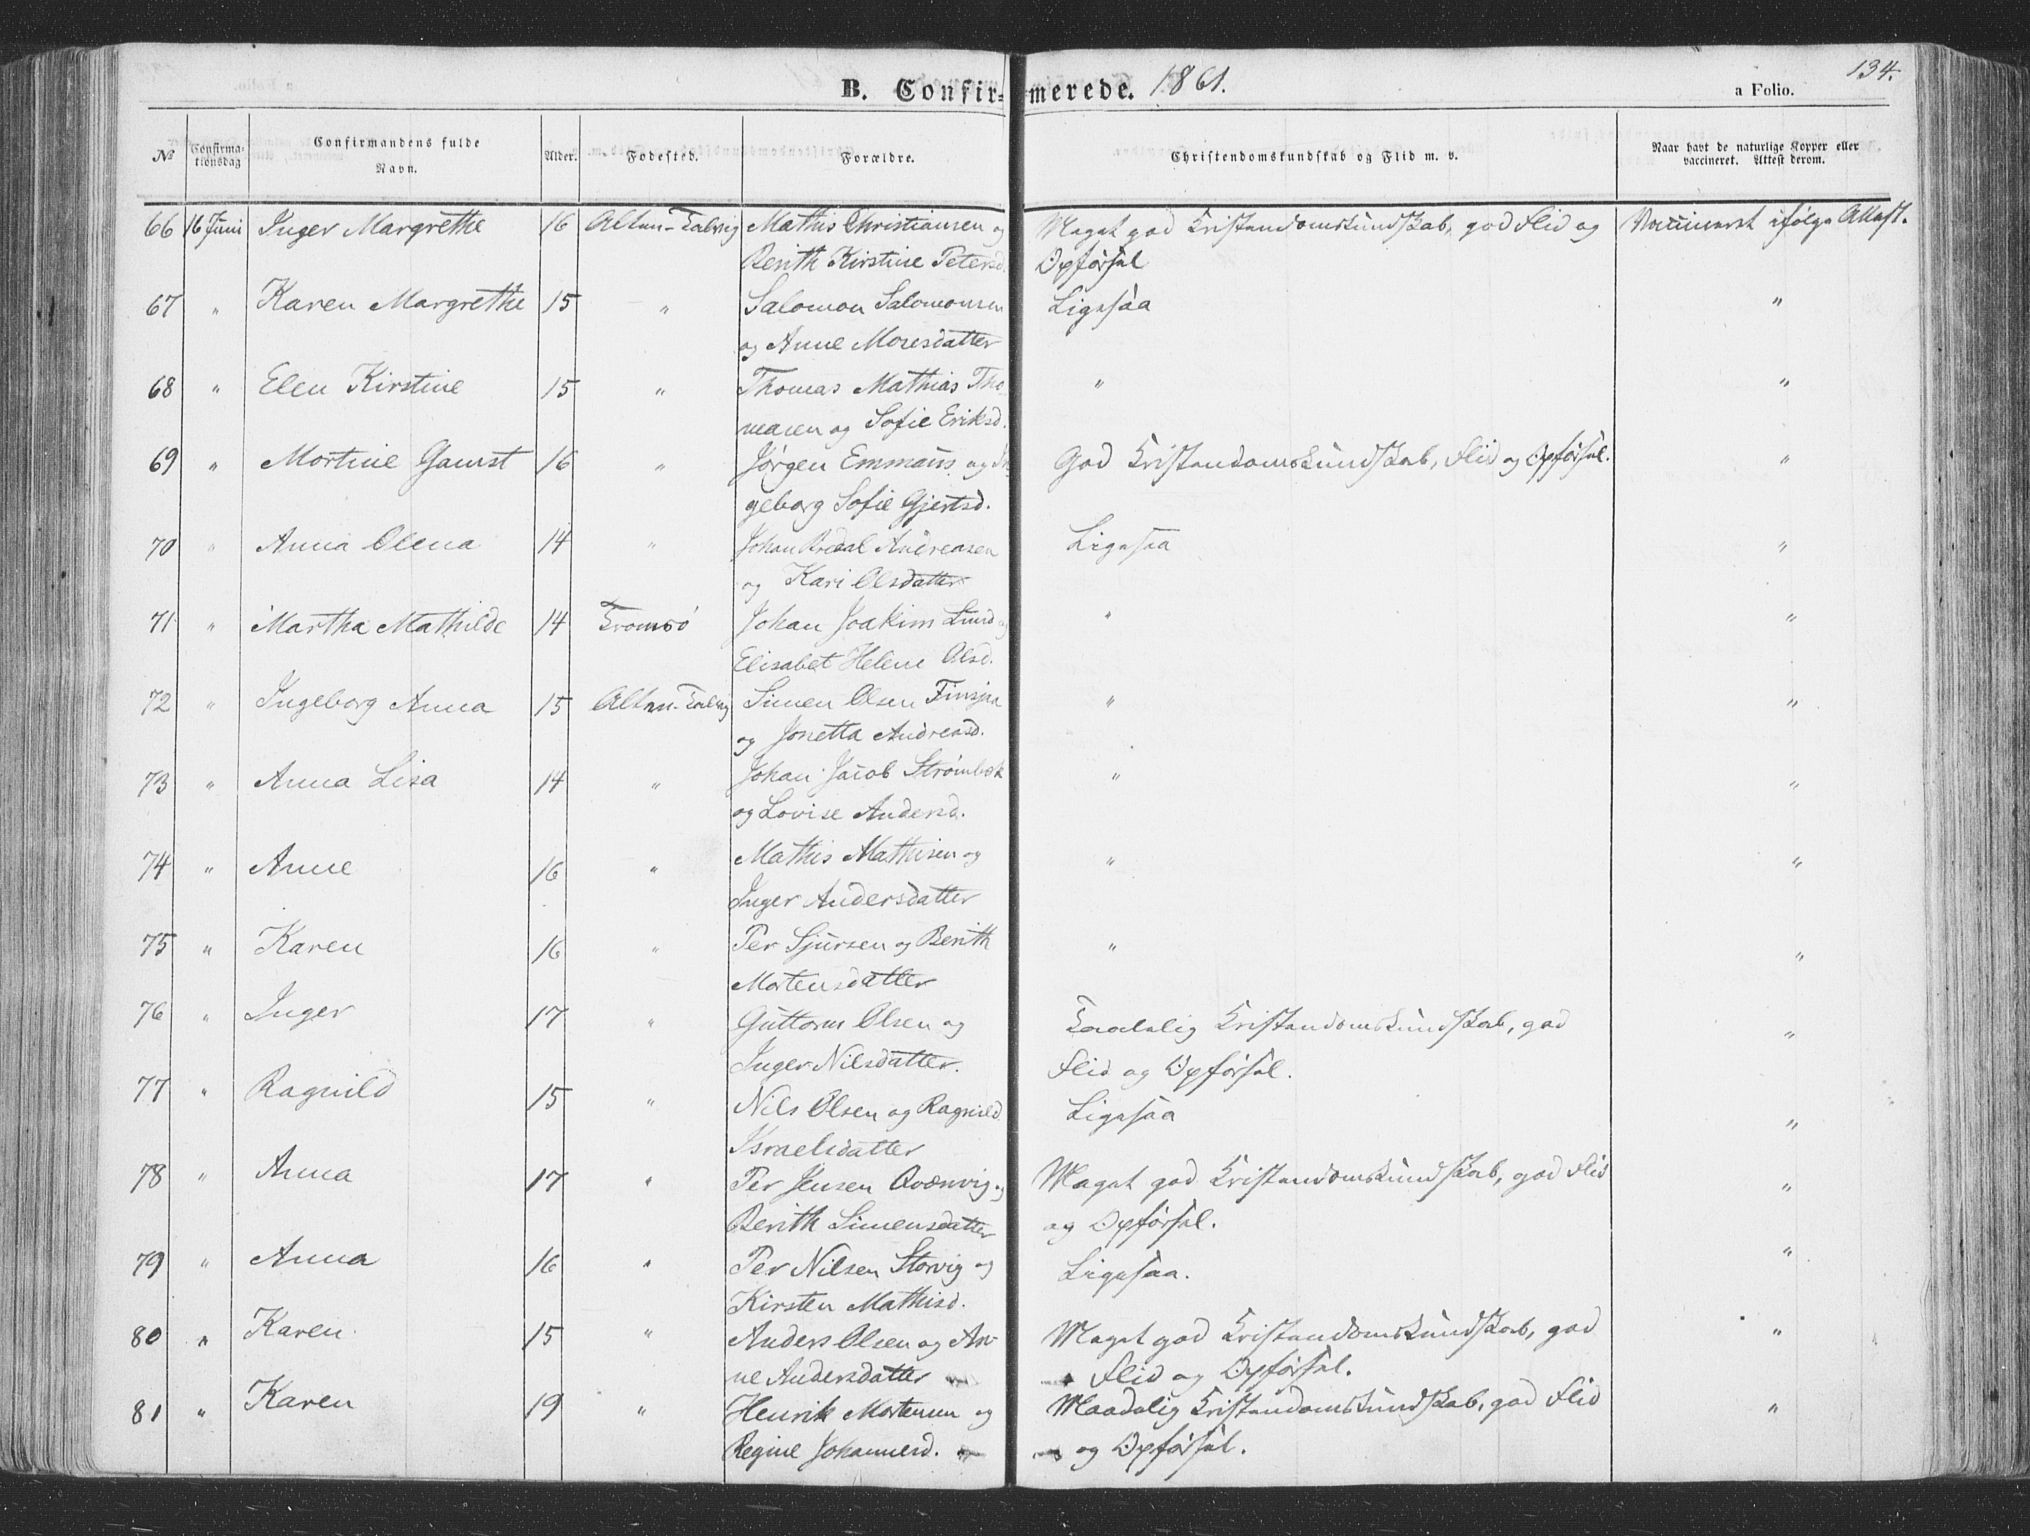 B. Confirmerede. 1861.
a Folio.
134.
No
Confirmationsdag
Confirmandens fulde Navn.
Alder.
Fødested.
Forældre.
Christendomskundskab og Flid m. v.
Naar havt de naturlige Kopper eller vaccineret. Attest derom.
66 16 Juni Inger Margrethe 16 Alten-Talvig Mathis Christiansen og Meget god Kristendomskundskab, god Flid og Vaccineret ifølge Attest.
Berith Kirstine Petersd. Opførsel
67 " Karen Margrethe 15 " Salomon Salomonsen Ligesaa "
og Anne Moresdatter
68 " Elen Kirstine 15 " Thomas Mathias Tho- " "
masen og Sofie Eriksd.
69 " Mortine Gamst 16 " Jørgen Emmaus og In- God Kristendomskundskab, Flid og Opførsel. "
geborg Sofie Gjertsd.
70 " Anna Olena 14 " Johan Bredal Andreasen Ligesaa "
og Kari Olsdatter
71 " Martha Mathilde 14 Tromsö Johan Joakim Lund og " "
Elisabet Helene Olsd.
72 " Ingeborg Anna 15 Alten-Talvig Simen Olsen " "
og Jonetta Andreasd.
73 " Anna Lisa 14 " Johan Jacob Strømbæk " "
og Lovise Andersd.
74 " Anne 16 " Mathis Mathisen og " "
Inger Andersdatter
75 " Karen 16 " Per Sjursen og Berith " "
Mortensdatter
76 " Inger 17 " Guttorm Olsen og Taalelig Kristendomskundskab, god "
Inger Nilsdatter. Flid og Opførsel.
77 " Ragnild 15 " Nils Olsen og Ragnild Ligesaa "
Israelsdatter
78 " Anna 17 " Per Jensen Qvænvig og Meget god Kristendomskundskab, god Flid "
Berith Simensdatter og Opførsel.
79 " Anna 16 " Per Nilsen Storvig og Ligesaa. "
Kirsten Mathisd.
80 " Karen 15 " Anders Olsen og An- Meget god Kristendomskundskab, god "
ne Andersdatter Flid og Opførsel.
81 " Karen 19 " Henrik Mortensen og Maadelig Kristendomskundskab, god Flid "
Regine Johannesd. og Opførsel.